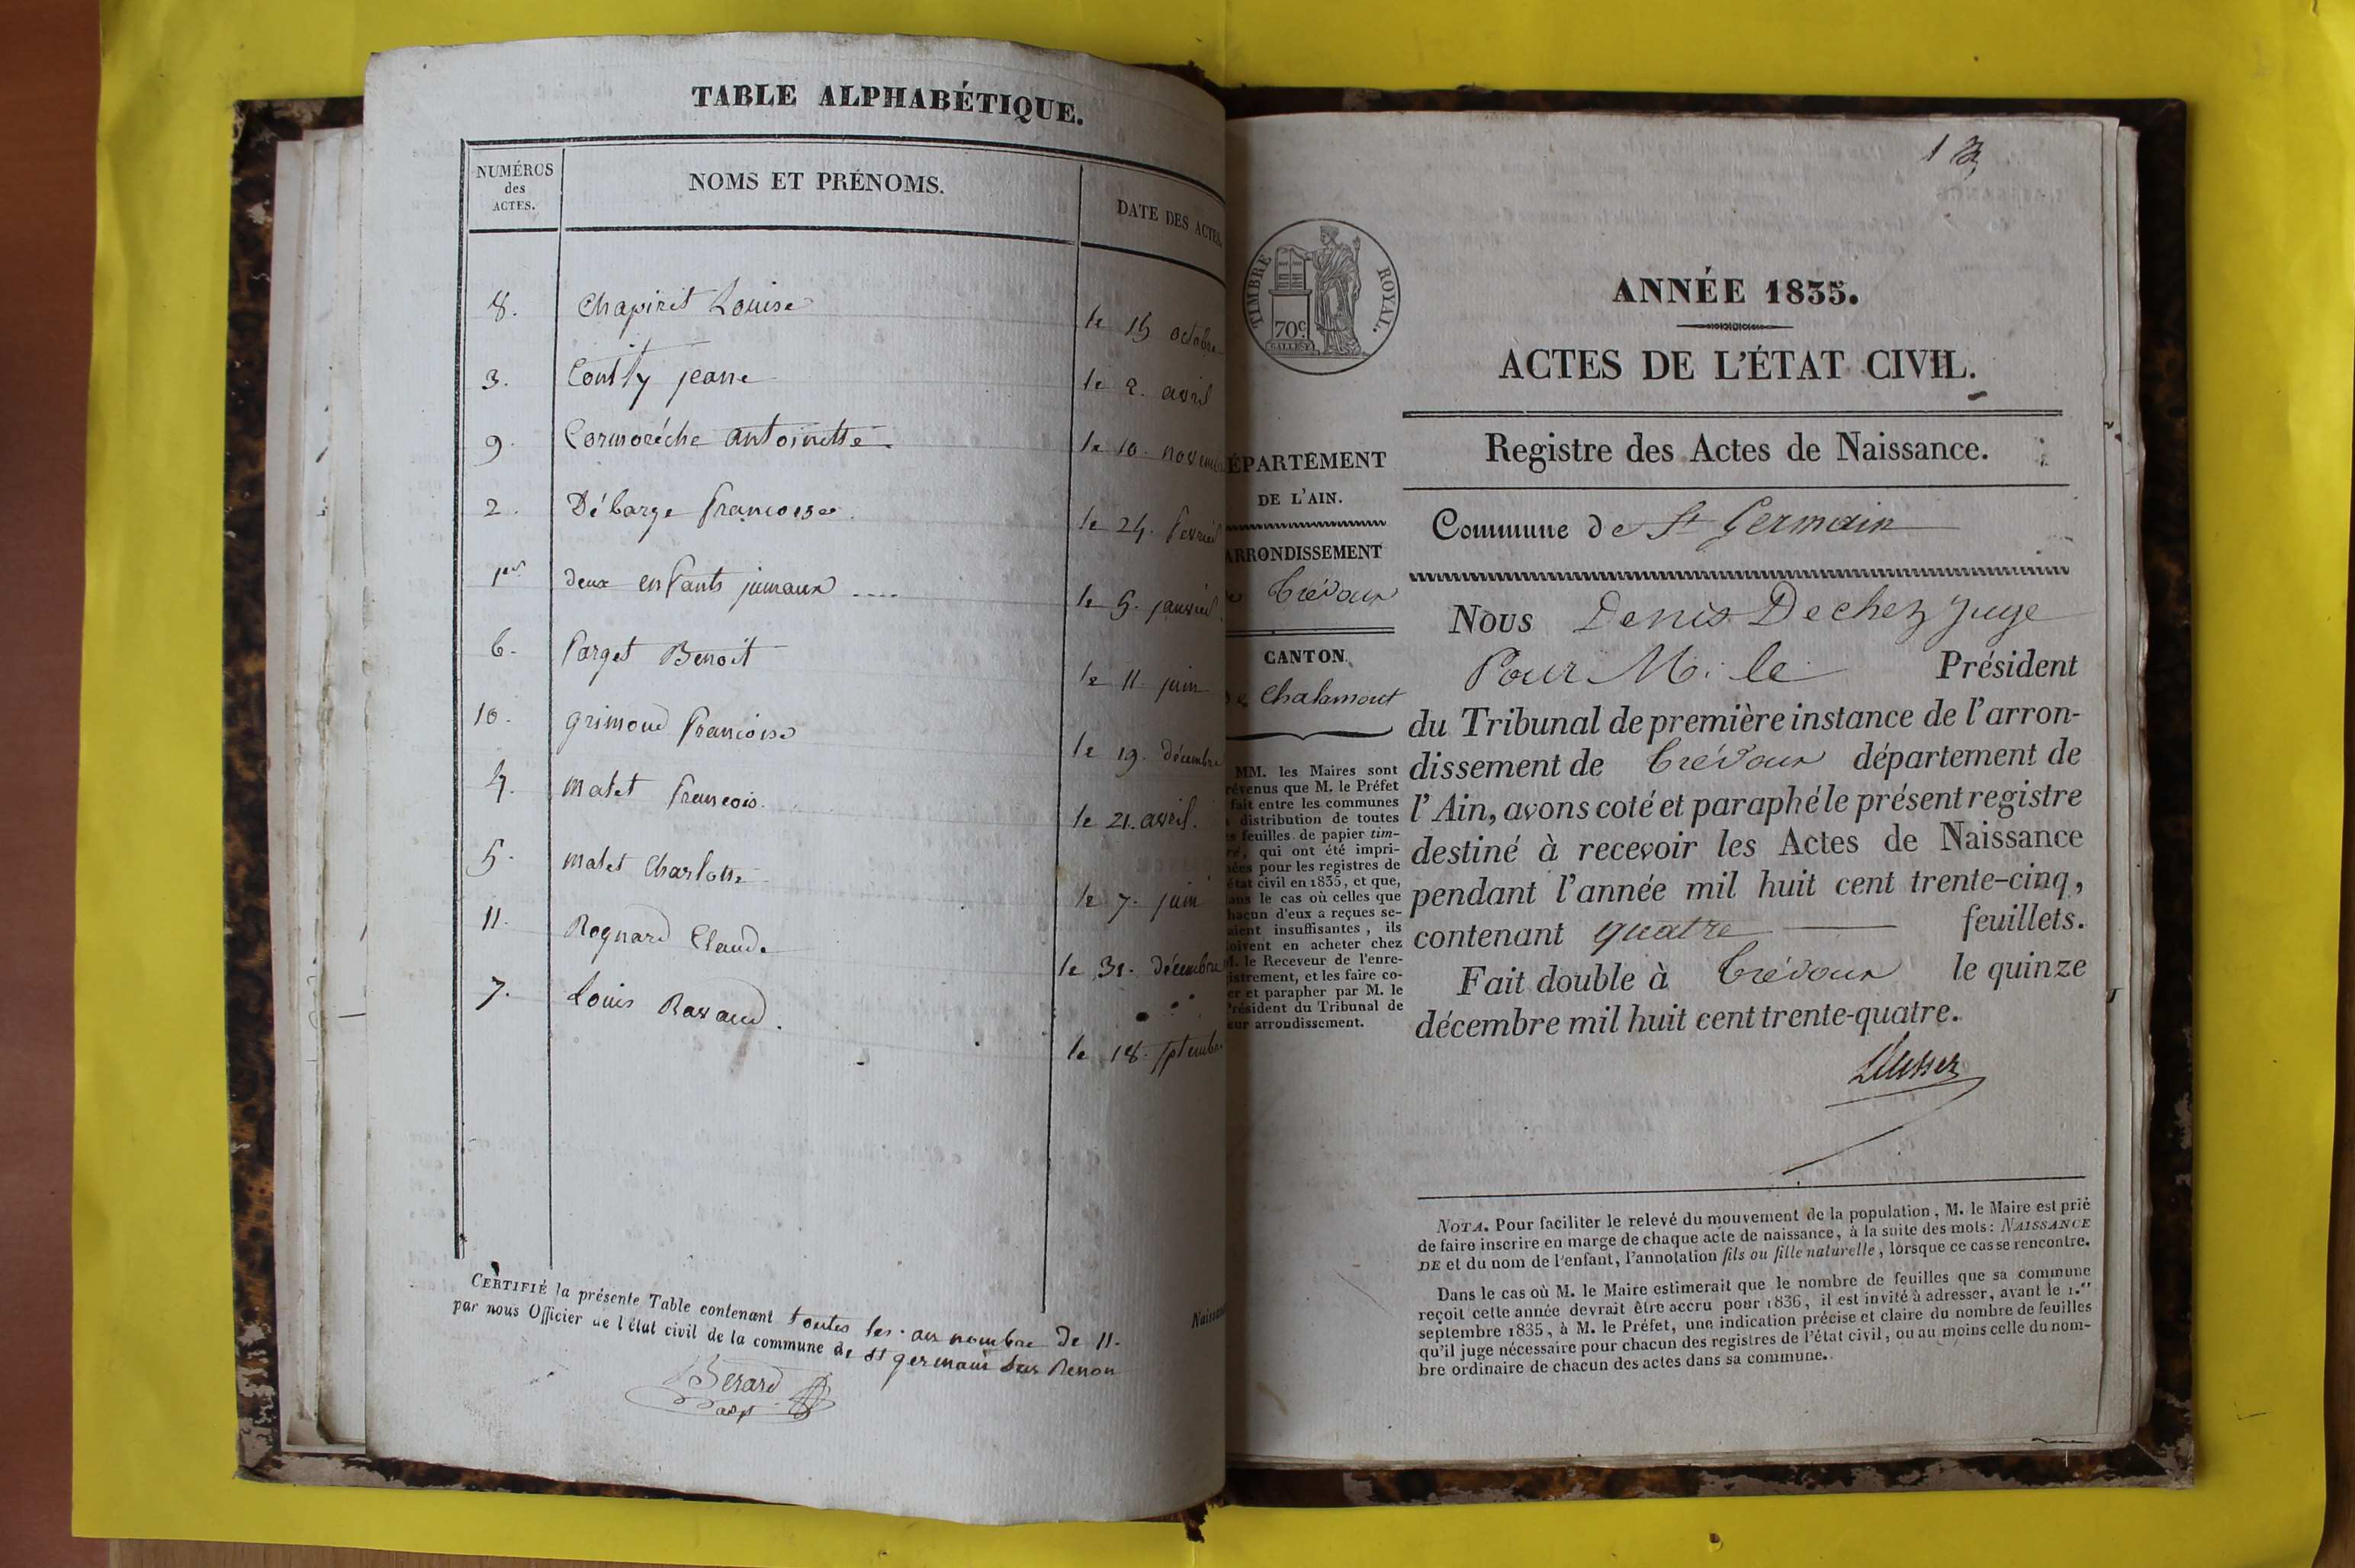 TABLE ALPHABÉTIQUE.
NUMÉROS des ACTES. NOMS ET PRÉNOMS. DATE DES ACTES
8. Chapirit Louise le 15 octobre
3. Coutty jeane le 2. avril
9. Cormorèche antoinette le 10. novemb
2. Débarge francoise le 24. fevrie
1er deux enfants jumaux .... le 5. janvie
6. farget Benoit le 11 juin
10. grimoud francoise le 19. décembre
4. matet francois. le 21. avril.
5. matet Charlotte le 7. juin
11. Rognard Claude le 31. décembre
7. Louis Ravaud. le 18. septembre
CERTIFIÉ la présente Table contenant toutes les au nombre de 11.
par nous Officier de l'état civil de la commune de st germain sur Renon
Berard
adjt
Naissan
13
TIMBRE ROYAL.
70c
ANNÉE 1835.
ACTES DE L'ÉTAT CIVIL.
Registre des Actes de Naissance.
Commune de St Germain
ÉPARTEMENT
DE L'AIN.
ARRONDISSEMENT
Trévoux
CANTON
de Chalamont
MM. les Maires sont
révenus que M. le Préfet
fait entre les communes
distribution de toutes
s feuilles de papier tim-
ré, qui ont été impri-
ées pour les registres de
état civil en 1835, et que,
ans le cas où celles que
hacun d'eux a reçues se-
aient insuffisantes, ils
oivent en acheter chez
M. le Receveur de l'enre-
istrement, et les faire co-
er et parapher par M. le
Président du Tribunal de
eur arrondissement.
Nous Denis Dechez juge
Pour M. le Président
du Tribunal de première instance de l'arron-
dissement de Trévoux département de
l'Ain, avons coté et paraphé le présent registre
destiné à recevoir les Actes de Naissance
pendant l'année mil huit cent trente-cinq,
contenant quatre feuillets.
Fait double à Trévoux le quinze
décembre mil huit cent trente-quatre.
NOTA. Pour faciliter le relevé du mouvement de la population, M. le Maire est prié
de faire inscrire en marge de chaque acte de naissance, à la suite des mots: NAISSANCE
DE et du nom de l'enfant, l'annotation fils ou fille naturelle, lorsque ce cas se rencontre.
Dans le cas où M. le Maire estimerait que le nombre de feuilles que sa commune
reçoit cette année devrait être accru pour 1836, il est invité à adresser, avant le 1.er
septembre 1835, à M. le Préfet, une indication précise et claire du nombre de feuilles
qu'il juge nécessaire pour chacun des registres de l'état civil, ou au moins celle du nom-
bre ordinaire de chacun des actes dans sa commune.